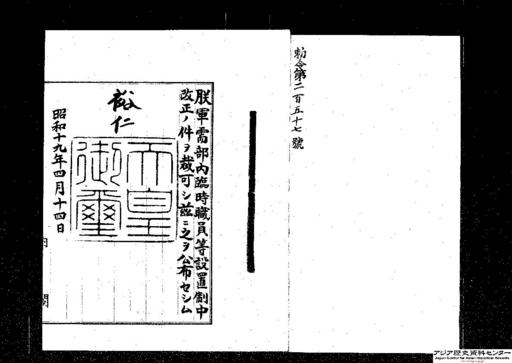 勅令第二百五十七號
朕軍需部內臨時職員等設置制中
改正ノ件ヲ裁可シ茲ニ之ヲ公布セシム
裕仁
天皇
御璽
昭和十九年四月十四日
內閣
アジア歴史資料センター
Japan Center for Asian Historical Records